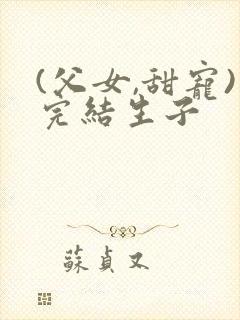 (父女,甜寵)
完結生子
蘇貞又